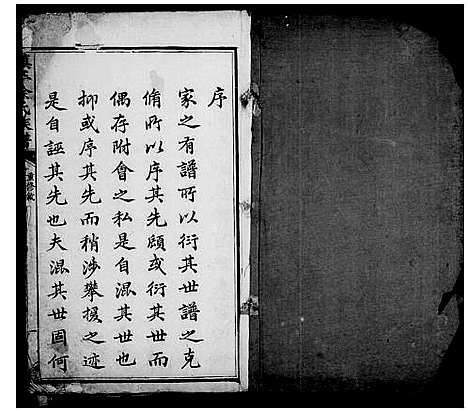 序
家之有譜所以衍其世譜之克
脩所以序其先顧或衍其世而
偶存附會之私是自混其世也
抑或序其先而稍涉攀援之迹
是自誣其先也夫混其世固何